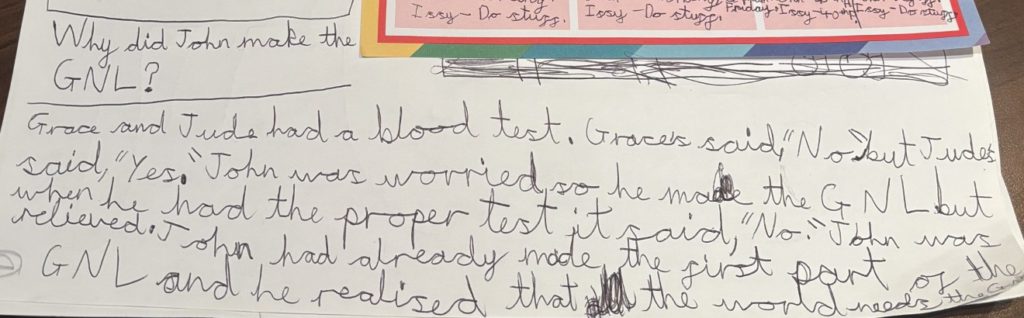 Issy - Do stuff.
Issy - Do stuff.
Friday, Issy
Issy - Do stuff.
Why did John make the
GNL?
Grace and Jude had a blood test. Grace's said, "No" but Jude's
said, "Yes." John was worried so he made the GNL but
when he had the proper test it said, "No." John was
relieved. John had already made the first part of the
GNL and he realised that the world needs the